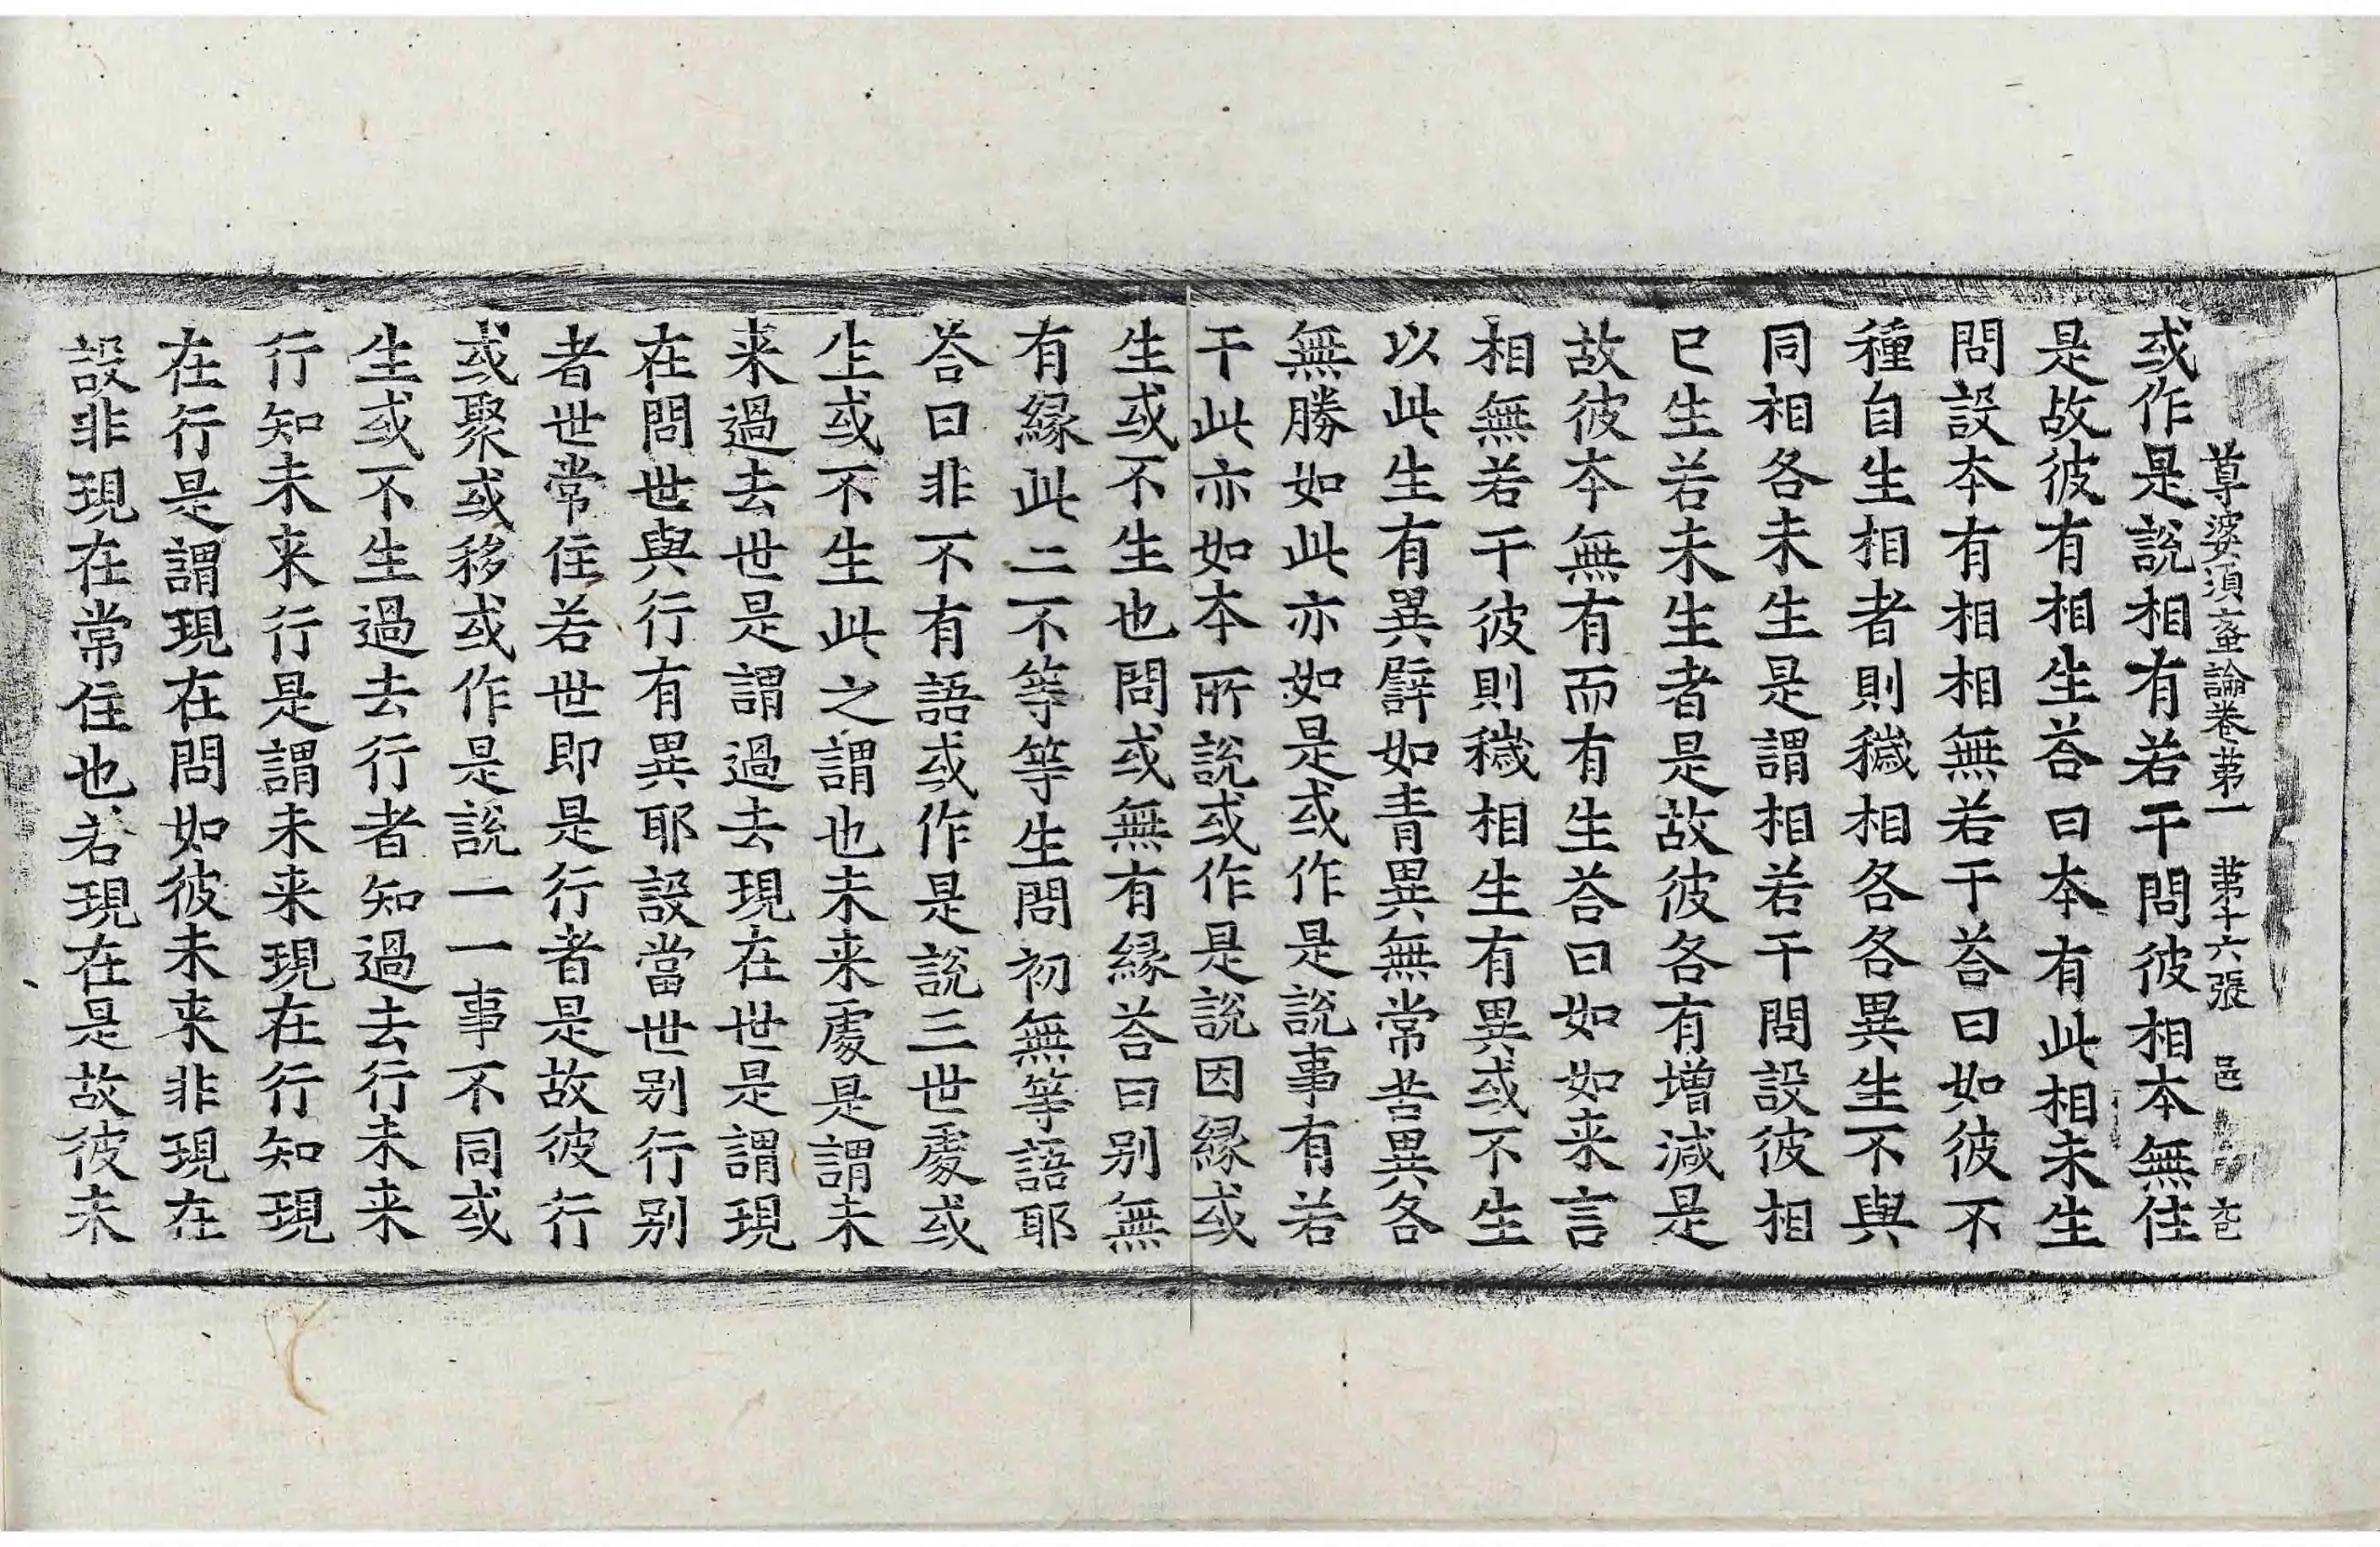 尊婆須蜜論卷苐一　苐十六張　邑
或作是說相有若干問彼相本無住
是故彼有相生荅曰本有此相未生
問設本有相相無若干荅曰如彼不
種自生相者則穢相各各異生不與
同相各未生是謂相若干問設彼相
已生若未生者是故彼各有增減是
故彼本無有而有生荅曰如如来言
相無若干彼則穢相生有異或不生
以此生有異辟如青異無常苦異各
無勝如此亦如是或作是說事有若
干此亦如本所說或作是說因緣或
生或不生也問或無有緣荅曰别無
有緣此二不等等生問初無等語耶
荅曰非不有語或作是說三世處或
生或不生此之謂也未来處是謂未
来過去世是謂過去現在世是謂現
在問世與行有異耶設當世别行别
者世常住若世即是行者是故彼行
或聚或移或作是說一一事不同或
生或不生過去行者知過去行未来
行知未来行是謂未来現在行知現
在行是謂現在問如彼未来非現在
設非現在常住也若現在是故彼未